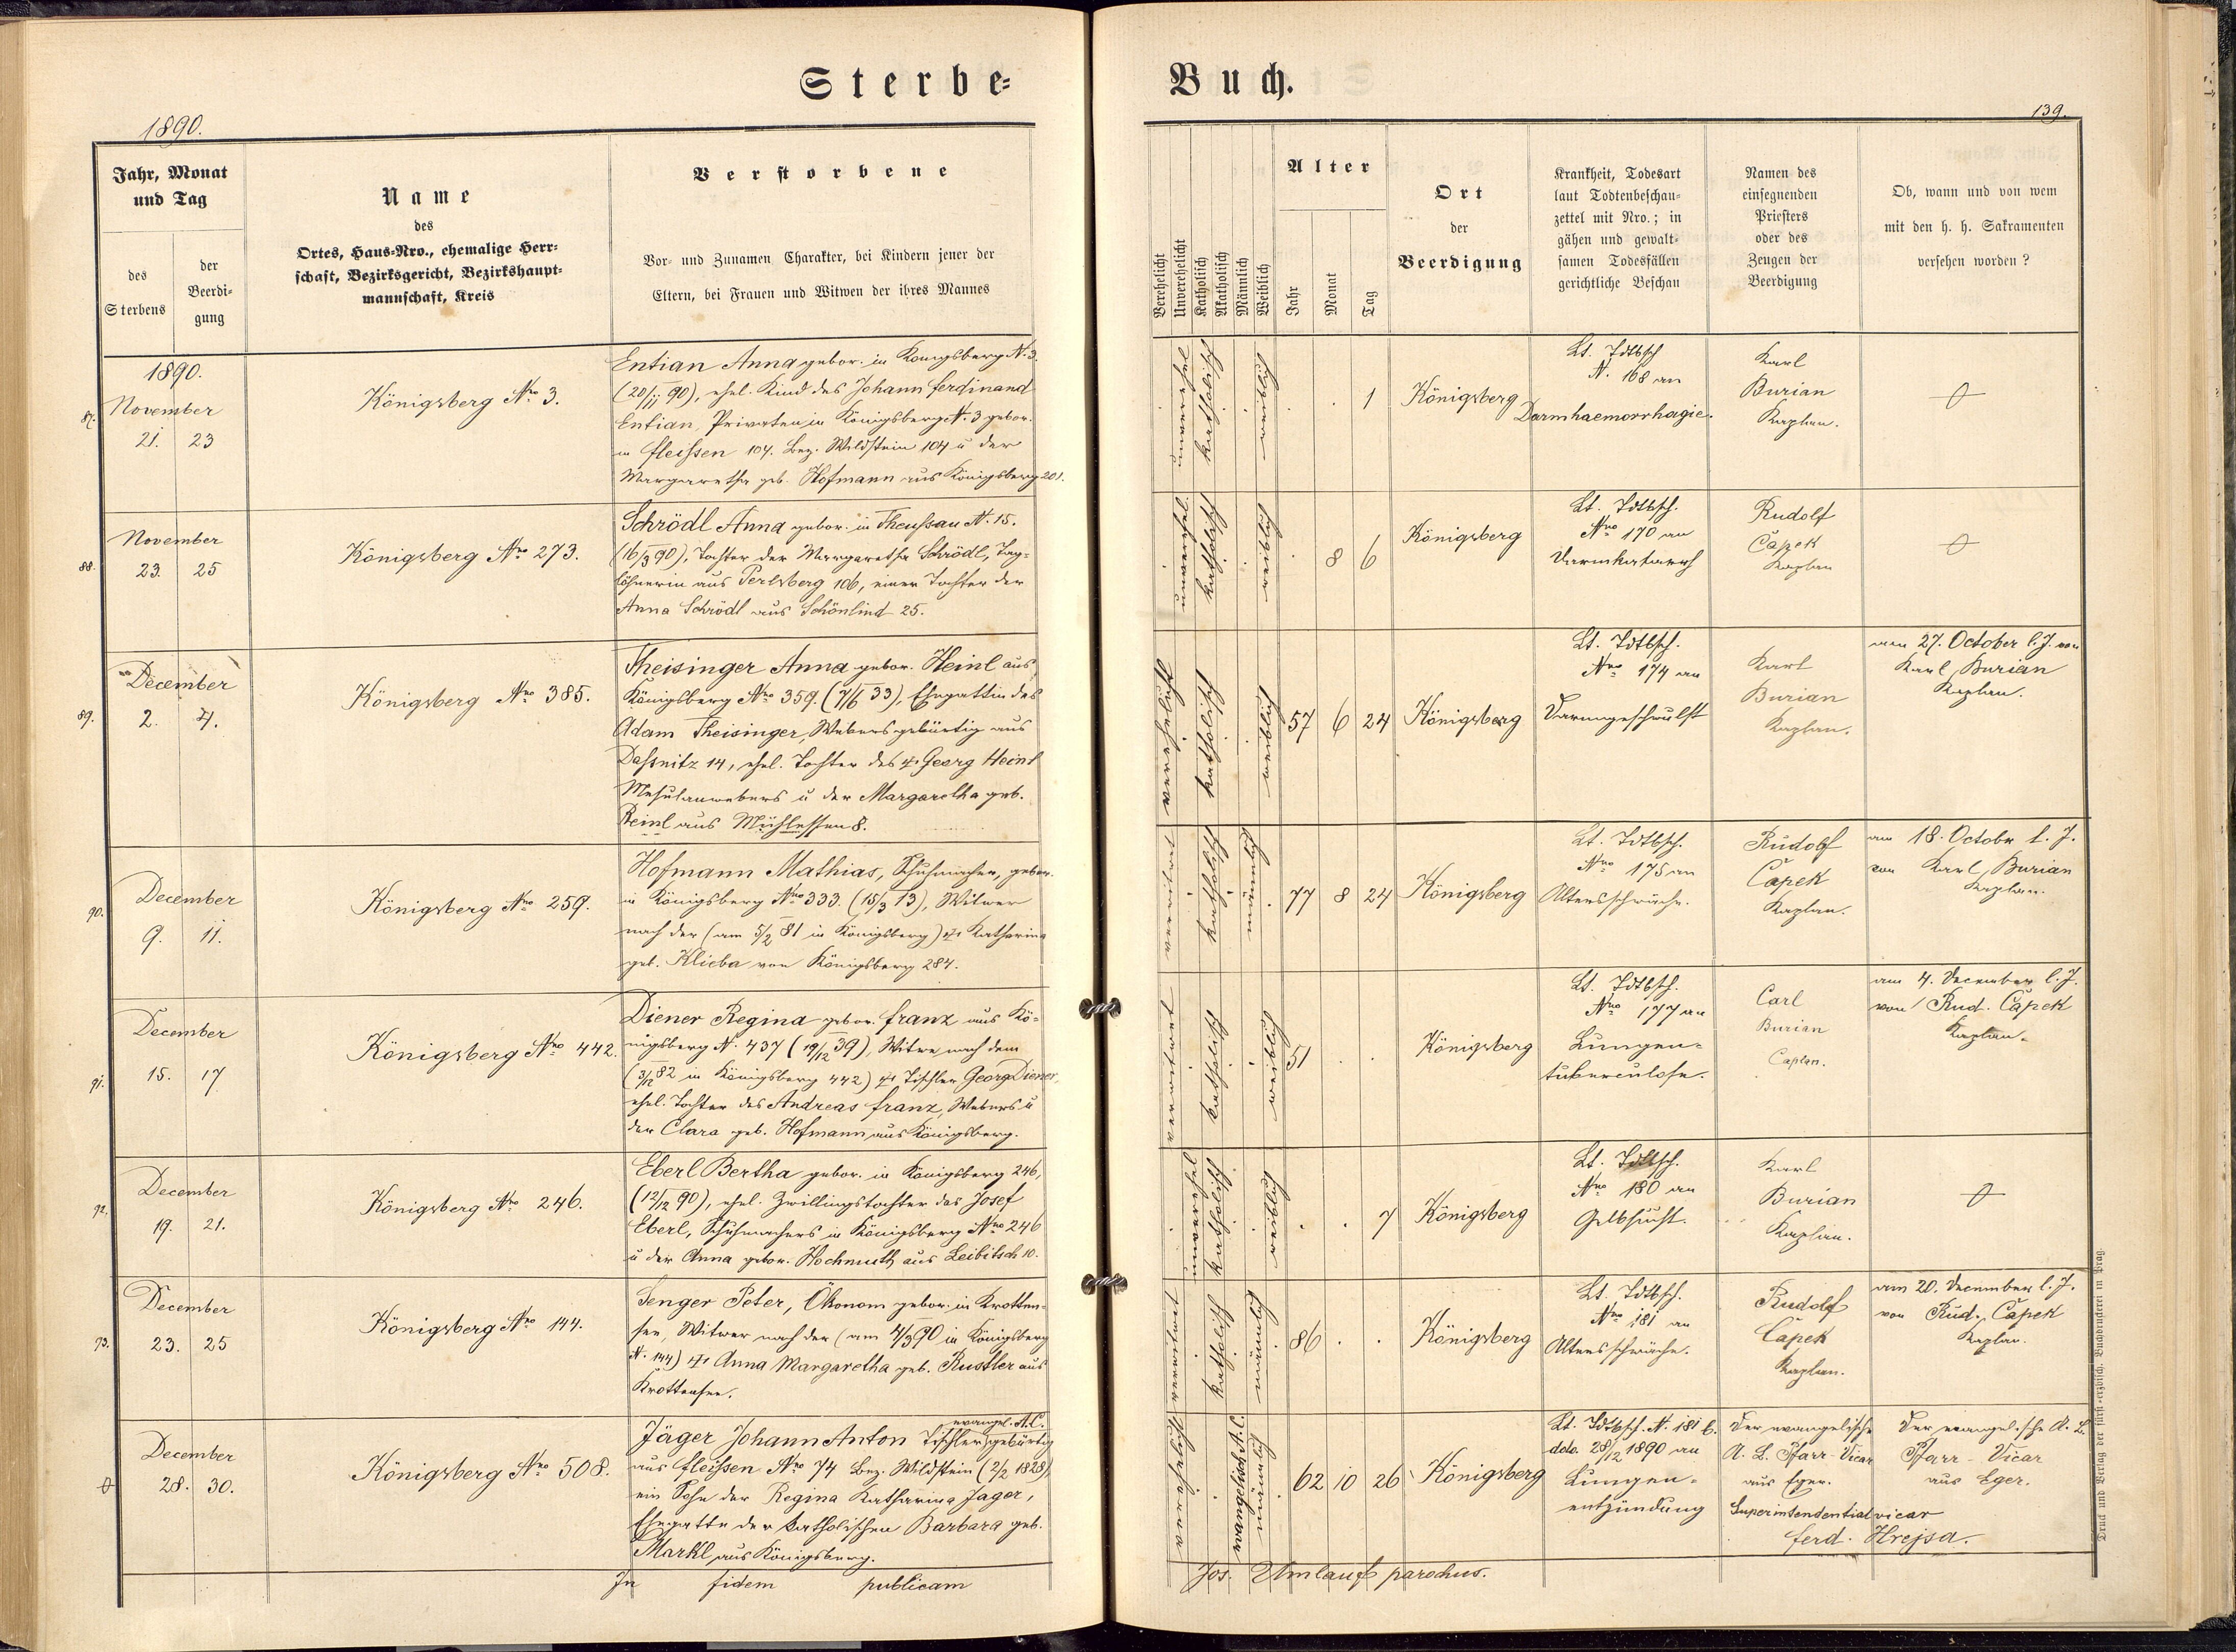 Sterbe=
Buch.
1890.
139.
Jahr, Monat
und Tag
des
Sterbens
der
Beerdi=
gung
Name
des
Ortes, Haus=Nro., ehemalige Herr=
schaft, Bezirksgericht, Bezirkshaupt=
mannschaft, Kreis
Verstorbene
Vor= und Zunamen, Charakter, bei Kindern jener der
Eltern, bei Frauen und Witwen der ihres Mannes
Verehelicht
Unverehelicht
Katholisch
Akatholisch
Männlich
Weiblich
Alter
Jahr
Monat
Tag
Ort
der
Beerdigung
Krankheit, Todesart
laut Todtenbeschau=
zettel mit Nro.; in
gähen und gewalt=
samen Todesfällen
gerichtliche Beschau
Namen des
einsegnenden
Priesters
oder des
Zeugen der
Beerdigung
Ob, wann und von wem
mit den h. h. Sakramenten
versehen worden?
1890.
87. November
21. 23
Königsberg Nro 3.
Entian Anna gebor. in Königsberg N. 3.
(20/11 90), ehel. Kind des Johann Ferdinand
Entian, Privaten in Königsberg N. 3 gebor.
in Fleissen 104. Bez. Wildstein 104 u der
Margaretha geb. Hofmann aus Königsberg 201.
unverehel
katholisch
weiblich
1
Königsberg
Lt. Tdtbsch
N. 168 an
Darmhaemorrhagie.
Karl
Burian
Kaplan.
88. November
23. 25
Königsberg Nro 273.
Schrödl Anna gebor. in Theussau N. 15.
(16/3 90), Tochter der Margaretha Schrödl, Tag=
löhnerin aus Perlsberg 106, einer Tochter der
Anna Schrödl aus Schönlind 25.
unverehel.
katholisch
weiblich
8 6
Königsberg
Lt. Tdtbsch.
Nro 170 an
Darmkatarrh
Rudolf
Čapek
Kaplan
89. December
2. 4.
Königsberg Nro 385.
Theisinger Anna gebor. Heinl aus
Königsberg Nro 359. (7/6 33), Ehegattin des
Adam Theisinger, Webers gebürtig aus
Dassnitz 14, ehel. Tochter des † Georg Heinl
Mesulanwebers u der Margaretha geb.
Reinl aus Mühlessen 8.
verehelicht
katholisch
weiblich
57 6 24
Königsberg
Lt. Tdtbsch.
Nro 174 an
Darmgeschwulst
Karl
Burian
Kaplan.
am 27. October l. J. von
Karl Burian
Kaplan.
90. December
9. 11.
Königsberg Nro 259.
Hofmann Mathias, Schuhmacher, gebor.
in Königsberg Nro 333. (15/3 13), Witwer
nach der (am 5/2 81 in Königsberg) † Katharina
geb. Klieba von Königsberg 284.
verwitwet
katholisch
männlich
77 8 24
Königsberg
Lt. Tdtbsch.
Nro 175 an
Altersschwäche.
Rudolf
Čapek
Kaplan.
am 18. Octobr l. J.
von Karl Burian
Kaplan.
91. December
15. 17
Königsberg Nro 442.
Diener Regina gebor. Franz aus Kö=
nigsberg N. 437 (19/12 39), Witwe nach dem
(3/12 82 in Königsberg 442) † Tischler Georg Diener,
ehel. Tochter des Andreas Franz, Webers u
der Clara geb. Hofmann aus Königsberg.
verwitwet
katholisch
weiblich
51
Königsberg
Lt. Tdtbsch.
Nro 177 an
Lungen=
tuberculose.
Carl
Burian
Caplan.
am 4. December l. J.
von Rud. Čapek
Kaplan.
92. December
19. 21.
Königsberg Nro 246.
Eberl Bertha gebor. in Königsberg 246,
(12/12 90), ehel. Zwillingstochter des Josef
Eberl, Schuhmachers in Königsberg Nro 246
u der Anna gebor. Hochmuth aus Leibitsch 10.
unverehel
katholisch
weiblich
7
Königsberg
Lt. Tdtbsch.
Nro 180 an
Gelbsucht.
Karl
Burian
Kaplan.
93. December
23. 25
Königsberg Nro 144.
Senger Peter, Ökonom gebor. in Krotten=
see, Witwer nach der (am 4/3 90 in Königsberg
N. 144) † Anna Margaretha geb. Rustler aus
Krottensee.
verwitwet
katholisch
männlich
86
Königsberg
Lt. Tdtbsch.
Nro 181 an
Altersschwäche.
Rudolf
Čapek
Kaplan.
am 20. December l. J.
von Rud. Čapek
Kaplan.
December
28. 30.
Königsberg Nro 508.
evangel. A. C.
Jäger Johann Anton Tischler, gebürtig
aus Fleissen Nro 74 Bez. Wildstein (2/2 1828)
ein Sohn der Regina Katharina Jager,
Ehegatte der katholischen Barbara geb.
Markl aus Königsberg.
verehelicht
evangelisch A. C.
männlich
62 10 26
Königsberg
Lt. Tdtbsch. N. 181 b.
ddo. 28/12 1890 an
Lungen=
entzündung
Der evangelische
A. B. Pfarr-Vicar
aus Eger.
Superintendentialvicar
Ferd. Hrejsa.
Der evangelische A. B.
Pfarr-Vicar
aus Eger.
In fidem publicam
Jos. Umlauft parochus.
Druck und Verlag der fürst=erzbisch. Buchdruckerei in Prag.